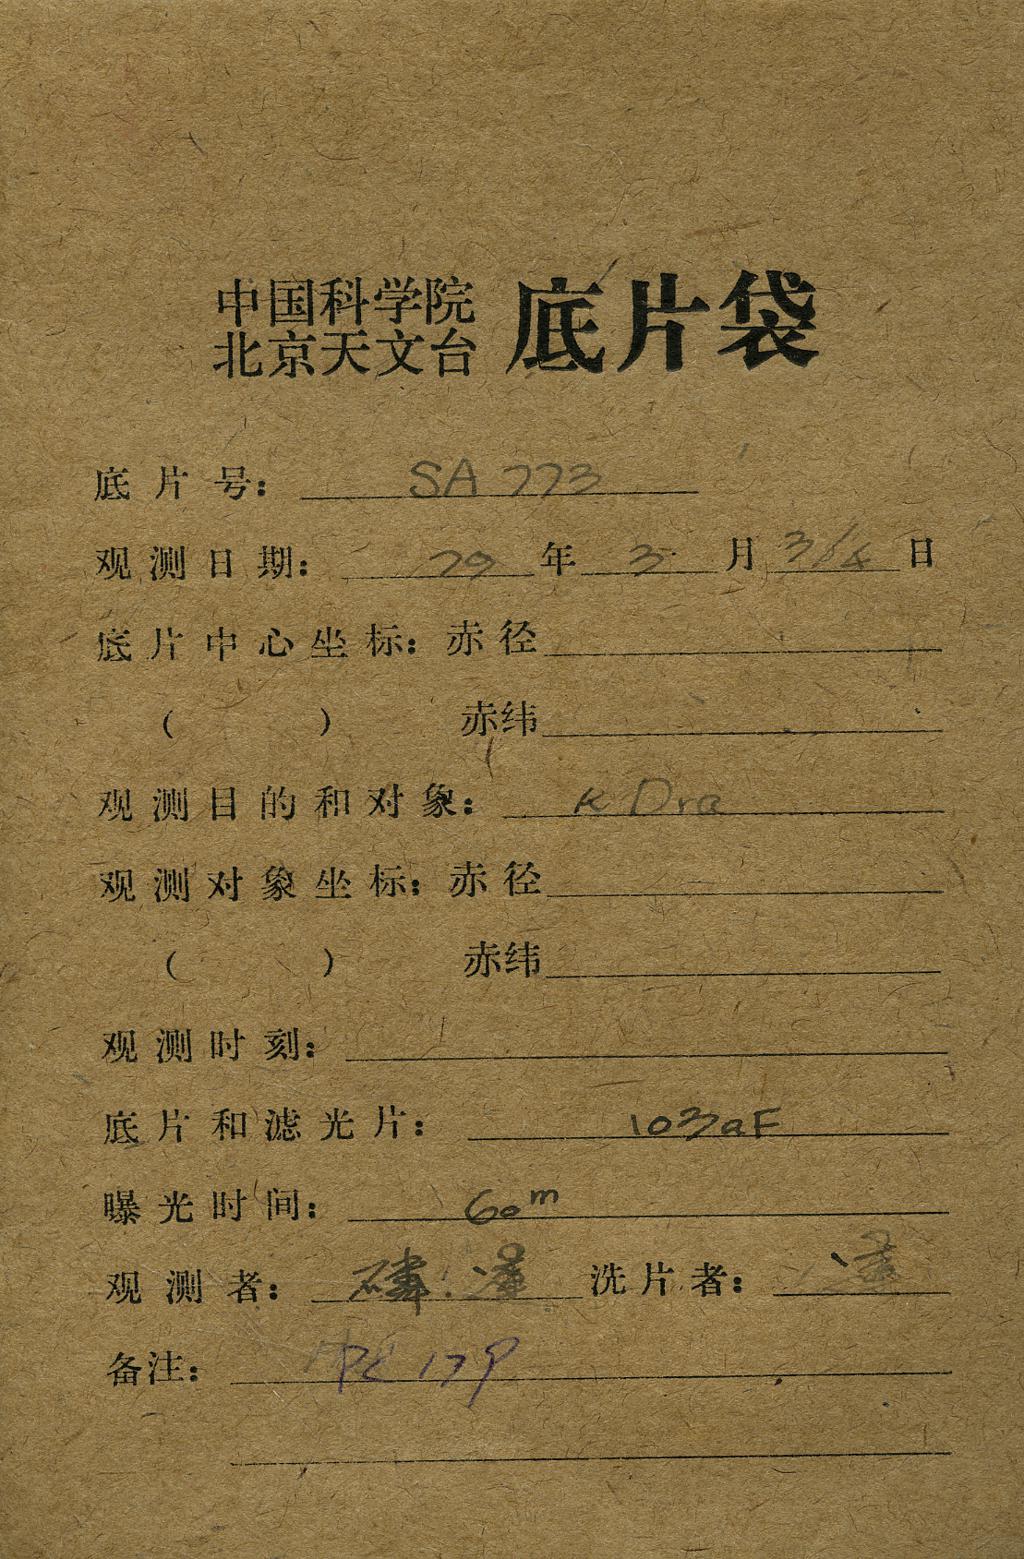 中国科学院
北京天文台 底片袋
底片号: SA 773
观测日期: 79 年 3 月 3/4 日
底片中心坐标: 赤径
( ) 赤纬
观测目的和对象: κ Dra
观测对象坐标: 赤径
( ) 赤纬
观测时刻:
底片和滤光片: 103aF
曝光时间: 60m
观测者: 洗片者:
备注: 179